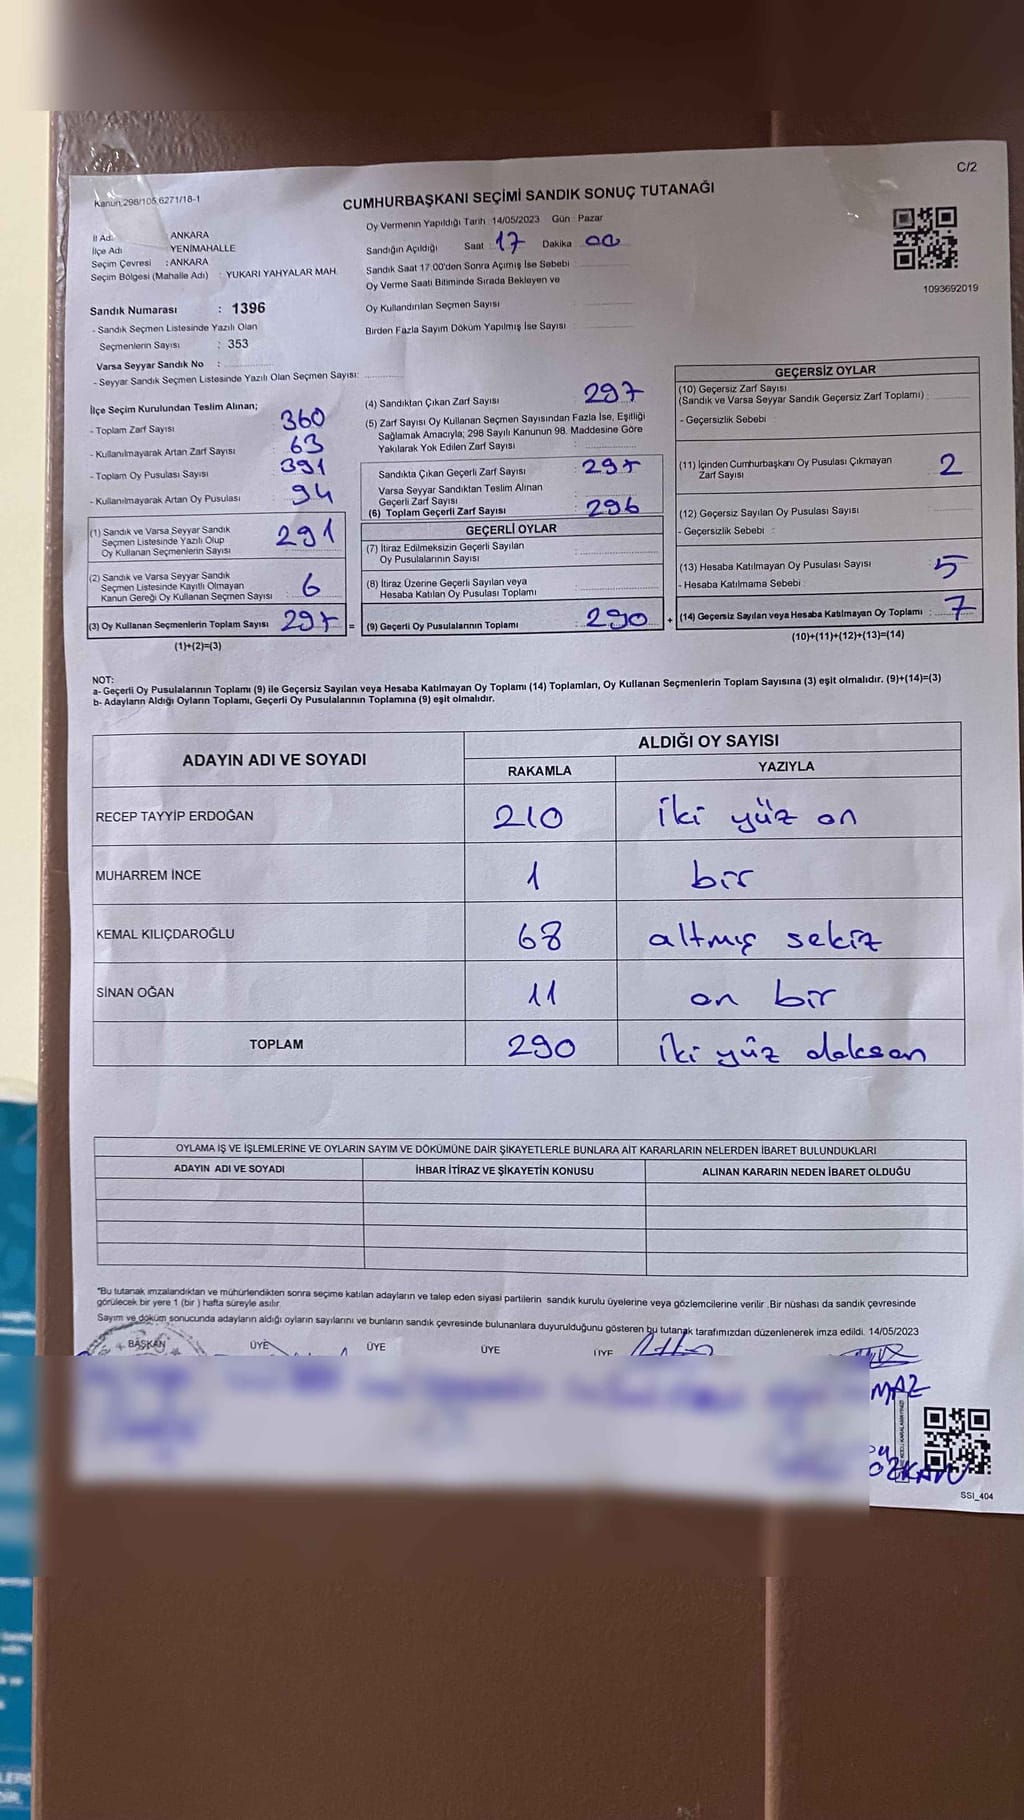 C/2
Kanun:298/105,6271/18-1
CUMHURBAŞKANI SEÇİMİ SANDIK SONUÇ TUTANAĞI
İl Adı : ANKARA
İlçe Adı YENİMAHALLE
Seçim Çevresi : ANKARA
Seçim Bölgesi (Mahalle Adı) : YUKARI YAHYALAR MAH.
Sandık Numarası : 1396
- Sandık Seçmen Listesinde Yazılı Olan
Seçmenlerin Sayısı : 353
Varsa Seyyar Sandık No :
- Seyyar Sandık Seçmen Listesinde Yazılı Olan Seçmen Sayısı:
Oy Vermenin Yapıldığı Tarih : 14/05/2023 Gün : Pazar
Sandığın Açıldığı Saat : 17 Dakika 00
Sandık Saat 17:00'den Sonra Açımış İse Sebebi :
Oy Verme Saati Bitiminde Sırada Bekleyen ve
Oy Kullandırılan Seçmen Sayısı
Birden Fazla Sayım Döküm Yapılmış İse Sayısı
1093692019
İlçe Seçim Kurulundan Teslim Alınan;
- Toplam Zarf Sayısı : 360
- Kullanılmayarak Artan Zarf Sayısı : 63
- Toplam Oy Pusulası Sayısı : 391
- Kullanılmayarak Artan Oy Pusulası : 94
(1) Sandık ve Varsa Seyyar Sandık
Seçmen Listesinde Yazılı Olup
Oy Kullanan Seçmenlerin Sayısı : 291
(2) Sandık ve Varsa Seyyar Sandık
Seçmen Listesinde Kayıtlı Olmayan
Kanun Gereği Oy Kullanan Seçmen Sayısı : 6
(3) Oy Kullanan Seçmenlerin Toplam Sayısı 297 =
(1)+(2)=(3)
(4) Sandıktan Çıkan Zarf Sayısı : 297
(5) Zarf Sayısı Oy Kullanan Seçmen Sayısından Fazla İse, Eşitliği
Sağlamak Amacıyla; 298 Sayılı Kanunun 98. Maddesine Göre
Yakılarak Yok Edilen Zarf Sayısı
Sandıkta Çıkan Geçerli Zarf Sayısı : 297
Varsa Seyyar Sandıktan Teslim Alınan
Geçerli Zarf Sayısı :
(6) Toplam Geçerli Zarf Sayısı : 296
GEÇERLİ OYLAR
(7) İtiraz Edilmeksizin Geçerli Sayılan
Oy Pusulalarının Sayısı :
(8) İtiraz Üzerine Geçerli Sayılan veya
Hesaba Katılan Oy Pusulası Toplamı :
(9) Geçerli Oy Pusulalarının Toplamı : 290 +
GEÇERSİZ OYLAR
(10) Geçersiz Zarf Sayısı
(Sandık ve Varsa Seyyar Sandık Geçersiz Zarf Toplamı) :
- Geçersizlik Sebebi :
(11) İçinden Cumhurbaşkanı Oy Pusulası Çıkmayan
Zarf Sayısı : 2
(12) Geçersiz Sayılan Oy Pusulası Sayısı
- Geçersizlik Sebebi :
(13) Hesaba Katılmayan Oy Pusulası Sayısı : 5
- Hesaba Katılmama Sebebi :
(14) Geçersiz Sayılan veya Hesaba Katılmayan Oy Toplamı : 7
(10)+(11)+(12)+(13)=(14)
NOT:
a- Geçerli Oy Pusulalarının Toplamı (9) ile Geçersiz Sayılan veya Hesaba Katılmayan Oy Toplamı (14) Toplamları, Oy Kullanan Seçmenlerin Toplam Sayısına (3) eşit olmalıdır. (9)+(14)=(3)
b- Adayların Aldığı Oyların Toplamı, Geçerli Oy Pusulalarının Toplamına (9) eşit olmalıdır.
ADAYIN ADI VE SOYADI ALDIĞI OY SAYISI
RAKAMLA YAZIYLA
RECEP TAYYİP ERDOĞAN 210 iki yüz on
MUHARREM İNCE 1 bir
KEMAL KILIÇDAROĞLU 68 altmış sekiz
SİNAN OĞAN 11 on bir
TOPLAM 290 iki yüz doksan
OYLAMA İŞ VE İŞLEMLERİNE VE OYLARIN SAYIM VE DÖKÜMÜNE DAİR ŞİKAYETLERLE BUNLARA AİT KARARLARIN NELERDEN İBARET BULUNDUKLARI
ADAYIN ADI VE SOYADI İHBAR İTİRAZ VE ŞİKAYETİN KONUSU ALINAN KARARIN NEDEN İBARET OLDUĞU
*Bu tutanak imzalandıktan ve mühürlendikten sonra seçime katılan adayların ve talep eden siyasi partilerin sandık kurulu üyelerine veya gözlemcilerine verilir .Bir nüshası da sandık çevresinde
görülecek bir yere 1 (bir ) hafta süreyle asılır.
Sayım ve döküm sonucunda adayların aldığı oyların sayılarını ve bunların sandık çevresinde bulunanlara duyurulduğunu gösteren bu tutanak tarafımızdan düzenlenerek imza edildi. 14/05/2023
BAŞKAN ÜYE ÜYE ÜYE ÜYE
MAZ
SSI_404